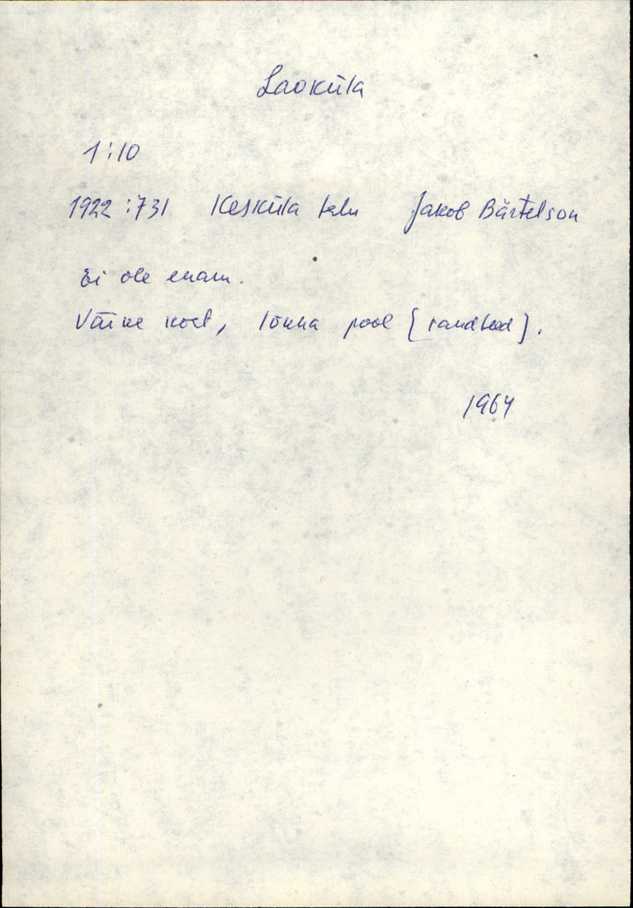 Laoküla
1:10
1922:731 Kesküla talu Jakob Bärtelson
Ei ole enam.
Väike koht, lõuna pool [raudteed].
1964